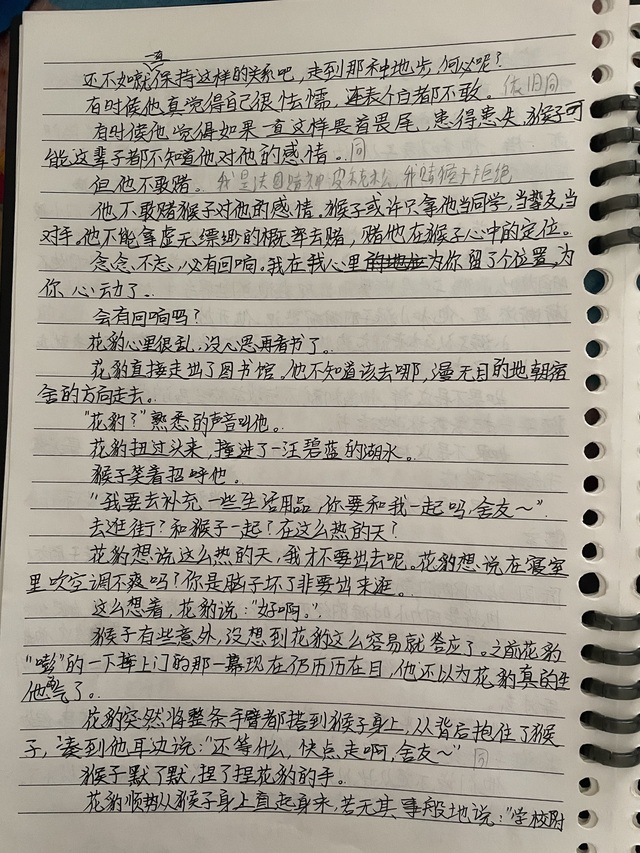 一直
还不如就保持这样的关系吧，走到那种地步，何必呢？
有时候他真觉得自己很怯懦，连表个白都不敢。 依旧同
有时候他觉得如果一直这样畏首畏尾，患得患失，猴子可
能这辈子都不知道他对他的感情。同
但他不敢赌。我是法国赌神
他不敢赌猴子对他的感情。猴子或许只拿他当同学，当挚友，当
对手。他不能拿虚无缥缈的概率去赌，赌他在猴子心中的定位。
念念不忘，必有回响。我在我心里的地位为你留了个位置，为
你心动了。
会有回响吗？
花豹心里很乱，没心思再看书了。
花豹直接走出了图书馆。他不知道该去哪，漫无目的地朝宿
舍的方向走去。
“花豹？”熟悉的声音叫他。
花豹扭过头来，撞进了一汪碧蓝的湖水。
猴子笑着招呼他。
“我要去补充一些生活用品，你要和我一起吗，舍友～”
去逛街？和猴子一起？在这么热的天？
花豹想说这么热的天，我才不要出去呢。花豹想说在寝室
里吹空调不爽吗？你是脑子坏了非要出来逛。
这么想着，花豹说：“好啊。”
猴子有些意外，没想到花豹这么容易就答应了。之前花豹
“嘭”的一下摔上门的那一幕现在仍历历在目，他还以为花豹真的生
他气了。
花豹突然将整条手臂都搭到猴子身上，从背后抱住了猴
子，凑到他耳边说：“还等什么，快点走啊，舍友～” 同
猴子默了默，捏了捏花豹的手。
花豹顺势从猴子身上直起身来，若无其事般地说：“学校附